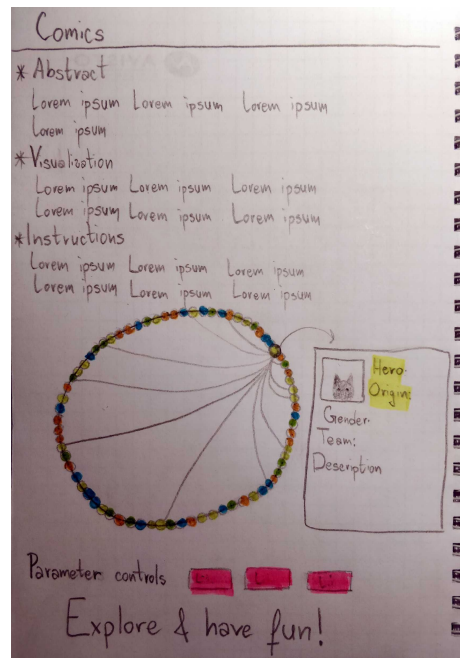 Comics
* Abstract
Lorem ipsum Lorem ipsum Lorem ipsum
Lorem ipsum
* Visualization
Lorem ipsum Lorem ipsum Lorem ipsum
Lorem ipsum Lorem ipsum Lorem ipsum
* Instructions
Lorem ipsum Lorem ipsum Lorem ipsum
Lorem ipsum Lorem ipsum Lorem ipsum
Hero:
Origin:
Gender:
Team:
Description
Parameter controls
Explore & have fun!